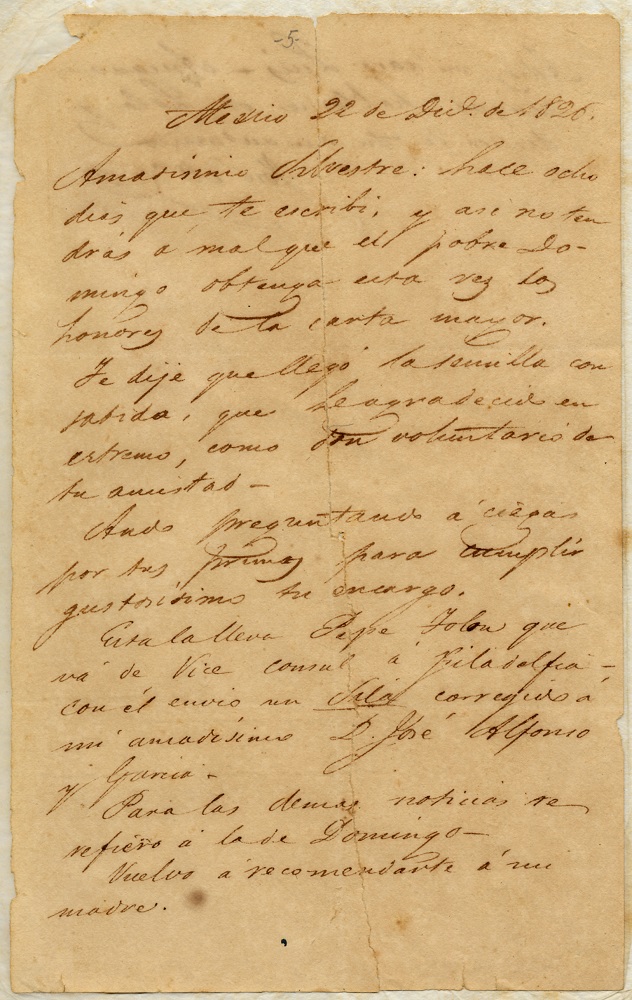 -5-
Mexico 22 de Dice. de 1826.
Amadisimo Silvestre: hace ocho
dias que te escribi, y asi no ten
drás á mal que el pobre Do-
mingo obtenga esta vez los
honores de la carta mayor.
Te dije que llegó la semilla con
sabida, que he agradecido en
estremo, como don voluntario de
tu amistad -
Ando preguntando á ciegas
por tus primos para cumplir
gustosisimo tu encargo.
Esta la lleva Pepe Tolon que
vá de Vice consul á Filadelfia -
con él envio un Sila corregido á
mi amadisimo D. José Alfonso
y Garcia -
Para las demas noticias re
refiero á la de Domingo -
Vuelvo á recomendarte á mi
madre.